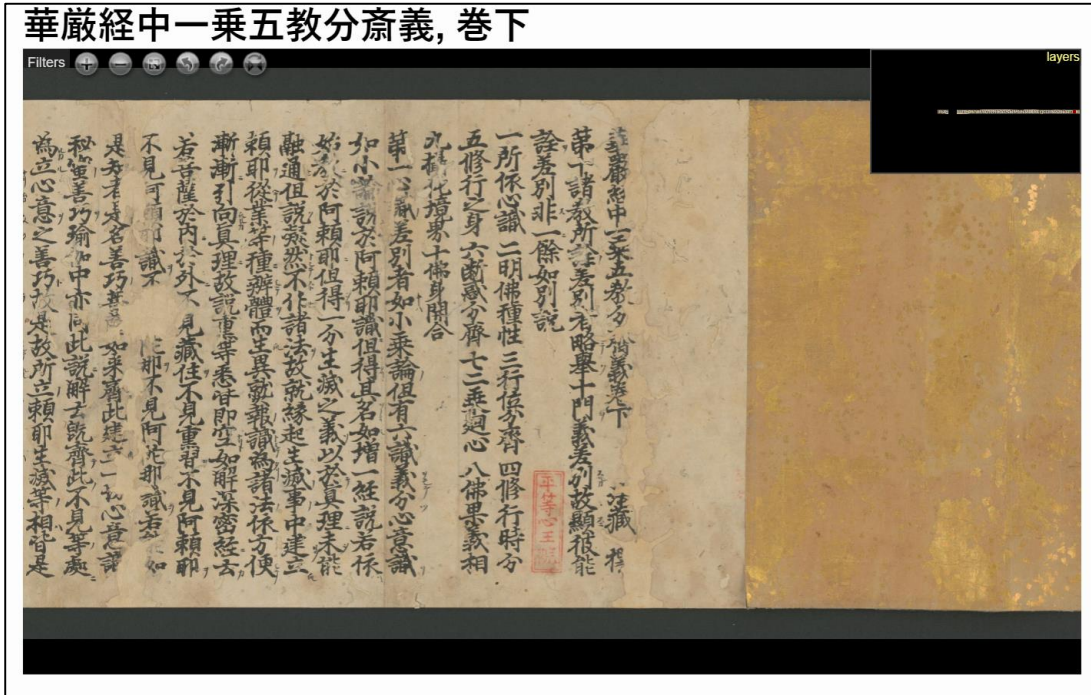 華厳経中一乗五教分斎義, 巻下
Filters
layers
華嚴經中一乗五教分 齊義卷下 法藏
第十諸教所詮差別者略舉十門義差別故顯彼能
詮差別非一餘如別說
一所依心識 二明佛種性 三行位分齊 四修行時分
五修行之身 六斷惑分齊 七二乗迴心 八佛果義相
九攝化境界十佛身開合
第一心識差別者如小乗論但有六識義分心意識
如小乗論說於阿頼耶識但得其名如增一經說若依
始教於阿頼耶但得一分生滅之義以於真理未能
融通但說凝然不作諸法故就緣起生滅事中建立
頼耶從業等種辨體而生異就報識為諸法依方便
漸漸引向真理故說熏等悉皆即空如解深密經云
若菩薩於內於外不見藏住不見熏習不見阿頼耶
不見阿頼耶識不 陀那不見阿陀那識若 如
是知者是名善巧菩 如来齊此建立一切心意識
秘密善巧瑜伽中亦同此說解云既齊此不見等處
為立心意之善巧故是故所立頼耶生滅等相皆是